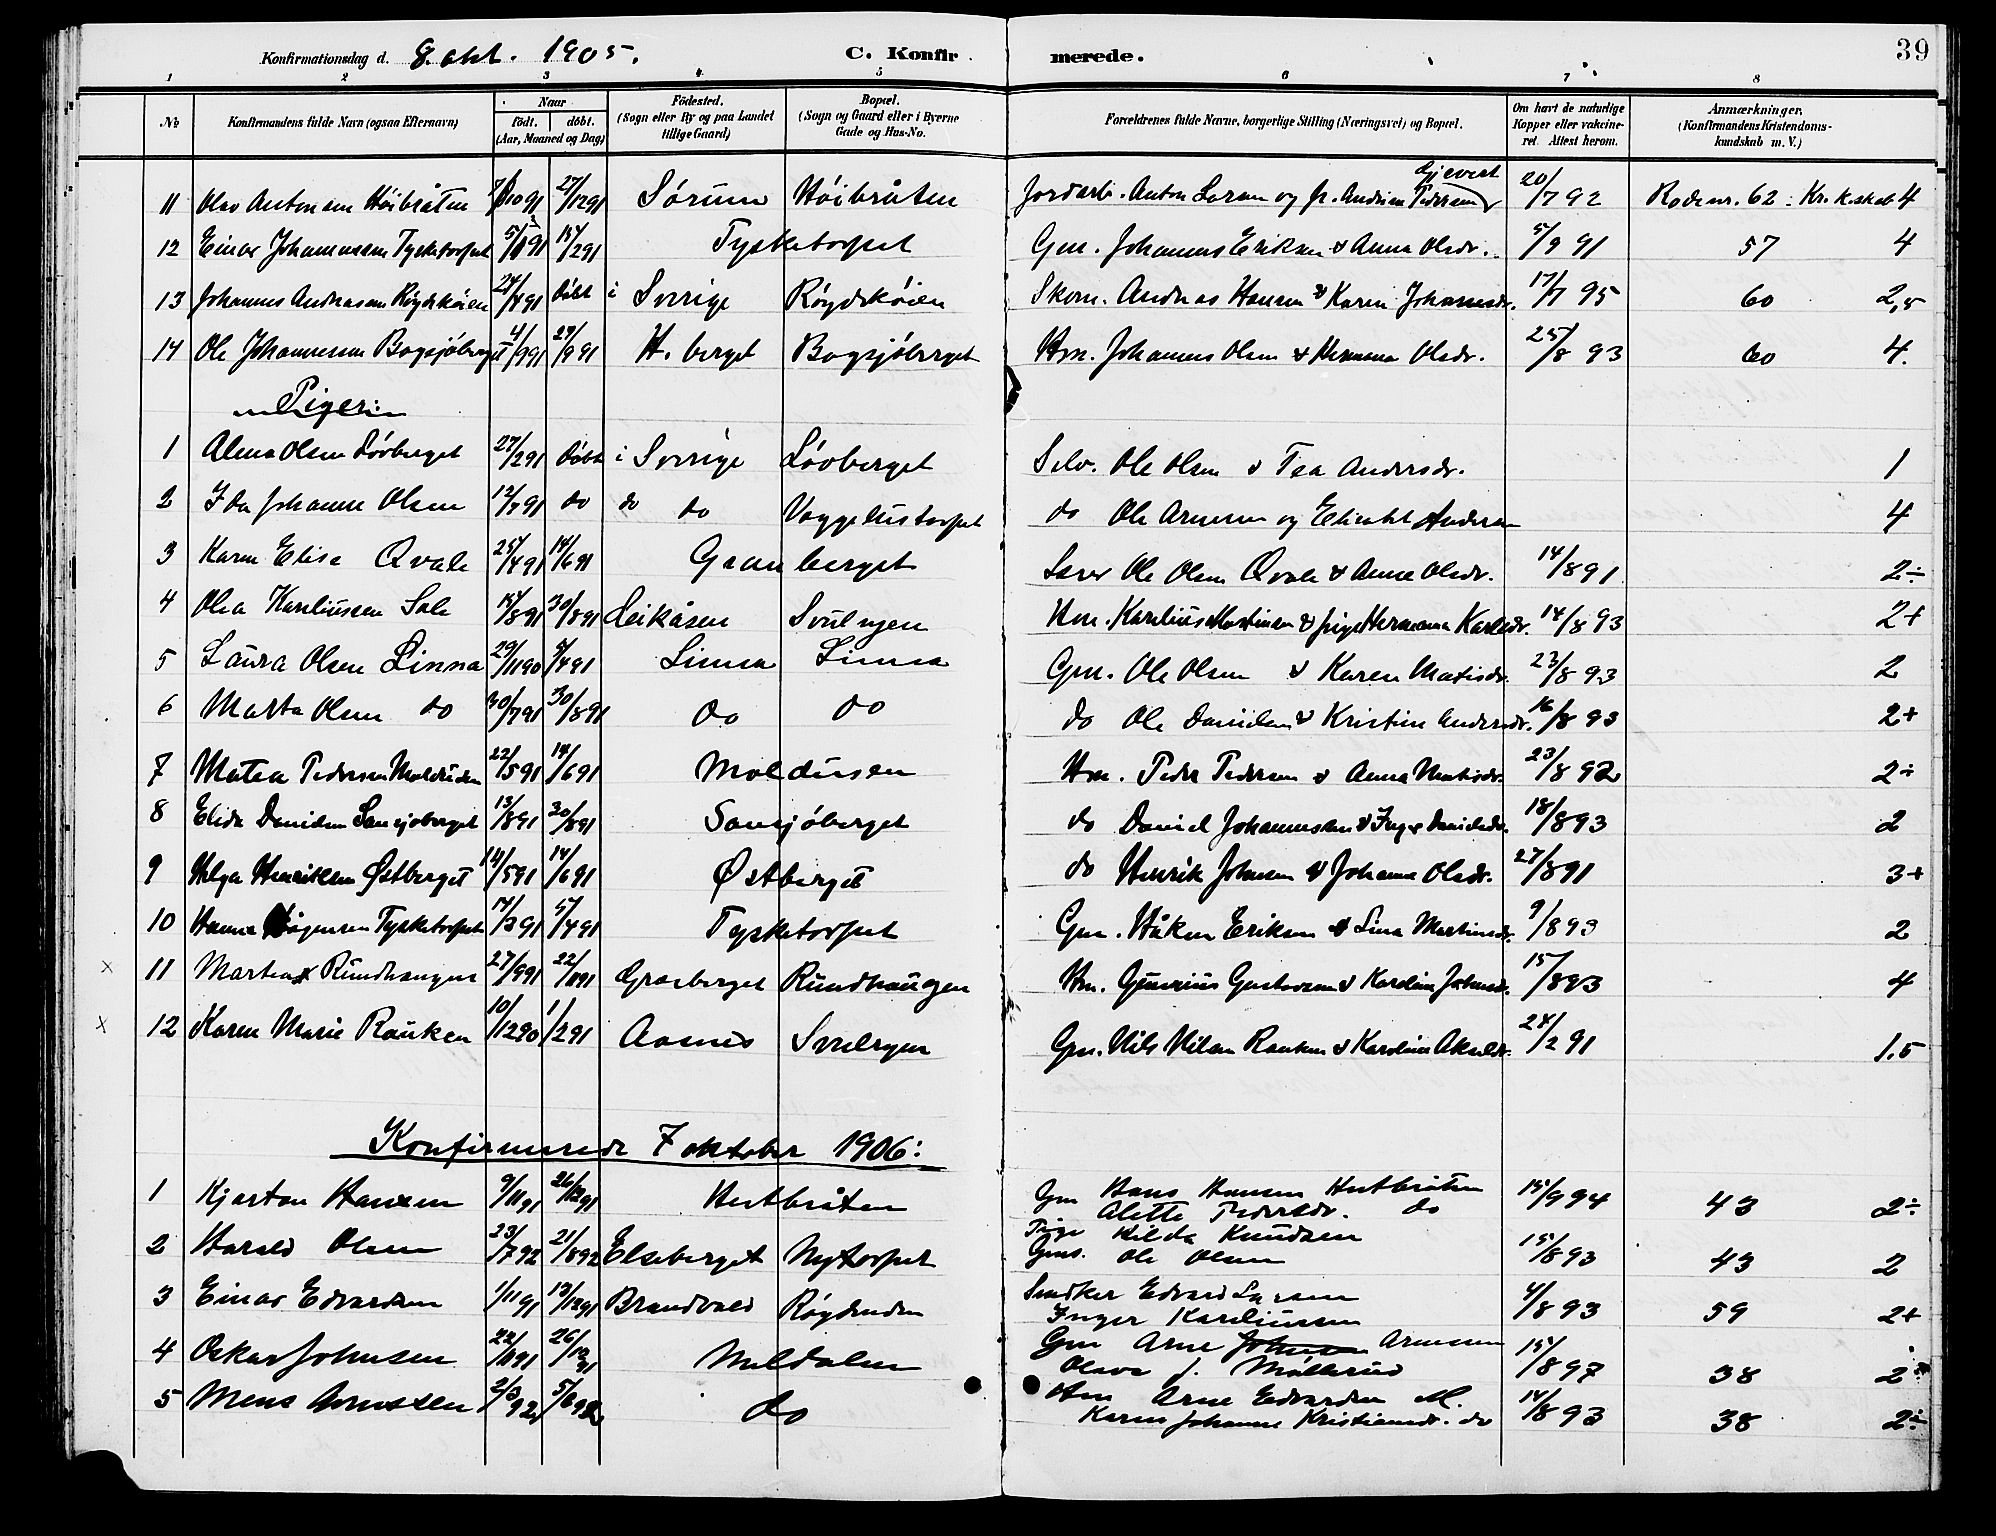 39
Konfirmationsdag d. 8. okt. 1905. C. Konfirmerede.
1 2 3 4 5 6 7 8
No. Konfirmandens fulde Navn (ogsaa Efternavn) Naar Födt. döbt. (Aar, Maaned og Dag) Födested. (Sogn eller By og paa Landet tillige Gaard) Bopæl. (Sogn og Gaard eller i Byerne Gade og Hus-No. Forældrenes fulde Navne, borgerlige Stilling (Næringsvei) og Bopæl. Om havt de naturlige Kopper eller vakcineret. Attest herom. Anmærkninger. (Konfirmandens Kristendomskundskab m. V.)
11 Olav Antonsen Höibråten 10 91 27/12 91 Sørum Höibråten Jordarb. Anton Larsen og Andrine Pedersen Gjevert 20/7 92 Rodenr. 62 : Kr. k.skab 4
12 Einar Johannessen Tysketorpet 15/2 91 Tysketorpet Gm. Johannes Eriksen & Anna Olsdr. 5/9 91 57 4
13 Johannes Andreasen Røgdskóien 24/4 91 döbt i Sverige Røgdskóien Skom. Andreas Hansen & Karin Johannesdr. 17/7 95 60 2,5
14 Ole Johannessen Bogsjöberget 4/9 91 27/9 91 H. berget Bogsjöberget Hm. Johannes Olsen & Hermana Olsdr. 25/8 93 60 4.
Piger:
1 Alma Olsen Lövberget 27/2 91 döbt i Sverige Lövberget Selv. Ole Olsen & Tea Andersdr. 1
2 Ida Johanne Olsen 12/7 91 do do do do Ole Arnesen og Elisabet Andersen 4
3 Karen Elise Qvale 25/4 91 14/6 91 Granberget Ole Olsen Qvale & Anne Olsdr. 14/8 91 2÷
4 Olea Kareliussen Sole 15/8 91 30/8 91 Leikåsen Svulryen Hm. Karelius Martinsen & pige Hermana Karlsdr. 14/8 93 2+
5 Laura Olsen Linna 29/11 90 5/4 91 Linna Linna Gm. Ole Olsen & Karen Matisdr. 23/8 93 2
6 Marta Olsen do 30/7 91 30/8 91 do do do Ole Danielsen & Kristine Andersdr. 16/8 93 2+
7 Matea Pedersen Moldusen 22/5 91 14/6 91 Moldusen Hm. Peder Pedersen & Anna Matisdr. 23/8 92 2÷
8 Elida Danielsen Sansjöberget 13/8 91 30/8 91 Sansjöberget do Daniel Johannessen & Inger Danielsdr. 18/8 93 2
9 Helga Henriksen Østberget 14/5 91 14/6 91 Østberget do Henrik Johnsen & Johanne Olsdr. 27/8 91 3+
10 Hanna Hågensen Tysketorpet 14/3 91 5/4 91 Tysketorpet Gm. Håken Eriksen & Lina Martinsdr. 9/8 93 2
x 11 Martea Rundhaugen 27/9 91 22/11 91 Grasberget Rundhaugen Hm. Gunerius Gustavsen & Karoline Johnsdr. 15/8 93 4
x 12 Karen Marie Rauken 10/12 90 1/2 91 Aasnes Svulryen Gm. Nils Nilsen Rauken & Karoline Akseldr. 24/2 91 1.5
Konfirmerede 7 oktober 1906:
1 Kjartan Hansen 9/11 91 26/12 91 Hestbråten Gm Hans Hansen Hestbråten 15/9 94 43 2÷
Alette Pedersdr. do
2 Harald Olsen 23/7 92 21/8 92 Elseberget Nytorpet Pige Hilda Knudsen 15/8 93 43 2
Gms. Ole Olsen
3 Einar Edvardsen 1/11 91 13/12 91 Brandvold Røgdenden Snedker Edvard Larsen 4/8 93 59 2+
Inger Kareliussen
4 Oskar Johnsen 22/11 91 26/12 91 Meldalen Gm Arne Johnsen Arnesen 15/8 97 38 2÷
Olava J. Møllerud
5 Mens Arnesen 2/3 92 5/6 92 do Hm Arne Edvardsen M. 14/8 93 38 2÷
Karen Johanne Kristiansdr. do